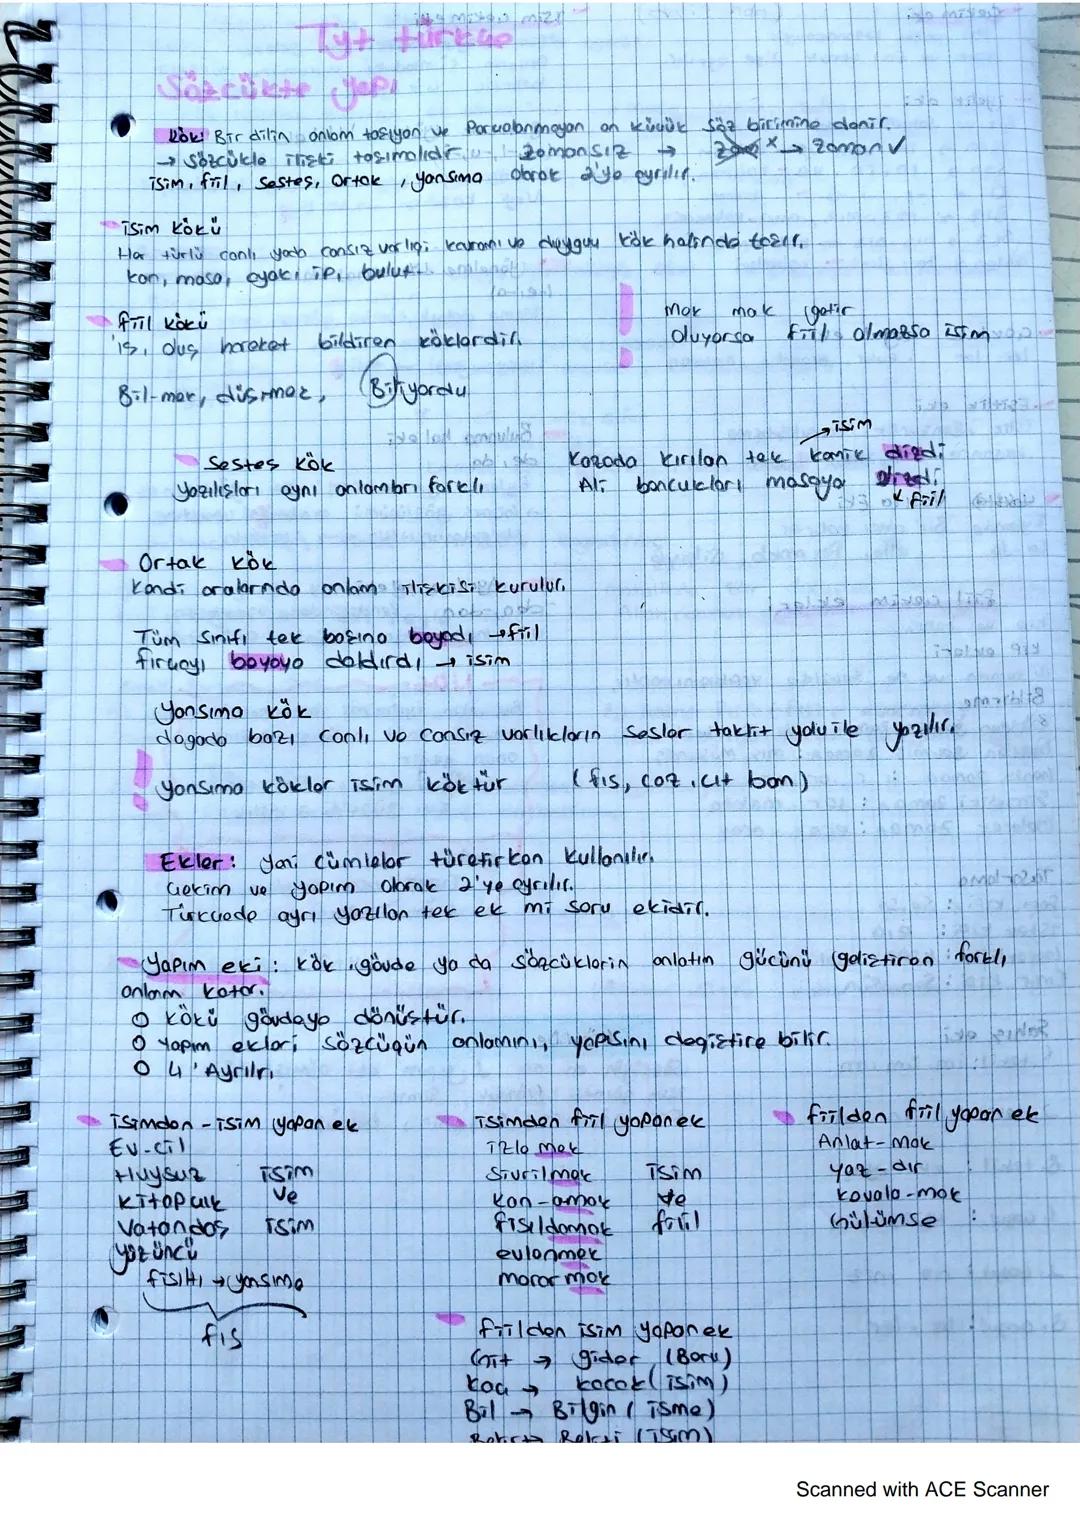 Tyt türkçe
Sözcükte yapı
Kök: Bir dilin anlam taşıyan ve Parçalanmayan en küçük söz birimine denir.
→ Sözcükle ilişki taşımalıdır. zamansız → x → zaman ✓
isim, fiil, sesteş, Ortak, yansıma olarak 2'ye ayrılır.
isim kökü
Her türlü canlı yada cansız varlığı kavramı ve duyguyu kök halinde taşır.
kan, masa, ayak, ip, bulut
fiil kökü
iş, oluş hareket bildiren köklerdir.
mek mak getir
Oluyorsa fiil olmazsa isim
Bil-mek, düşmez, Biliyordu
→ isim
Sesteş kök
Kazada kırılan tek kemik dizdi
Yazılışları aynı anlamları farklı
Ali boncukları masaya dizdi
↙ fiil
Ortak kök
Kendi aralarında anlam ilişkisi kurulur.
Tüm sınıfı tek başına boyadı → fiil
fırçayı boyaya daldırdı → isim
Yansıma kök
dogada bazı canlı ve cansız varlıkların sesler taklit yolu ile yazılır.
! yansıma kökler isim köktür (fıs, coz, cıt ban)
Ekler: yeni cümleler türetirken kullanılır.
Çekim ve yapım olarak 2'ye ayrılır.
Türkçede ayrı yazılan tek ek mi soru ekidir.
Yapım eki: kök, gövde ya da sözcüklerin anlatım gücünü geliştiren farklı
anlam katar.
O kökü gövdeye dönüştür.
O Yapım ekleri sözcüğün anlamını, yapısını değiştire bilir.
O 4' Ayrılır
isimden-isim yapan ek
Ev-cil
Huysuz isim
kitapçık ve
Vatandaş isim
yüzüncü
fısıltı → yansıma
fıs
isimden fiil yapan ek
izle mek
Sivrilmek isim
kan-amak ve
fısıldamak fiil
evlenmek
morar mak
fiilden fiil yapan ek
Anlat-mak
yaz-dır
kovala-mak
Gülümse :
fiilden isim yapan ek
Git → gider (Boru)
kaç → kaçak (isim)
Bil → Bilgin (isme)
(isim)
Scanned with ACE Scanner